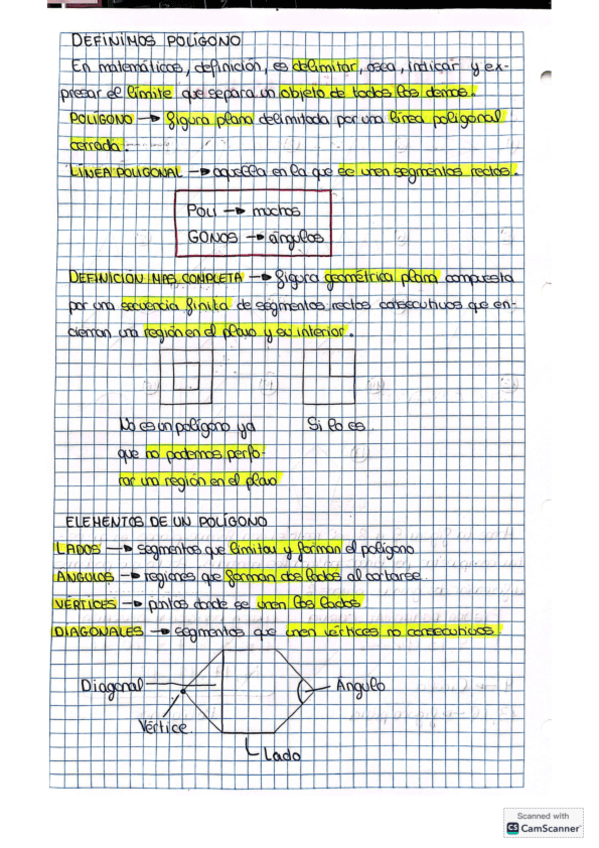 DEFINIMOS POLÍGONO
En matemáticas, definición, es delimitar, osea, indicar y ex-
presar el límite que separa un objeto de todos los demás.
POLÍGONO → figura plana delimitada por una línea poligonal
cerrada.
LÍNEA POLIGONAL → aquella en la que se unen segmentos rectos.
POLI → muchos
GONOS → ángulos
DEFINICIÓN MAS COMPLETA → figura geométrica plana compuesta
por una secuencia finita de segmentos rectos consecutivos que en-
cierran una región en el plano y su interior.
No es un polígono ya
que no podemos perfo-
rar una región en el plano
Si lo es.
ELEMENTOS DE UN POLÍGONO
LADOS → segmentos que limitan y forman el polígono
ÁNGULOS → regiones que forman dos lados al cortarse.
VÉRTICES → puntos donde se unen los lados
DIAGONALES → segmentos que unen vértices no consecutivos.
Diagonal
Ángulo
Vértice.
Lado
Scanned with
CS CamScanner